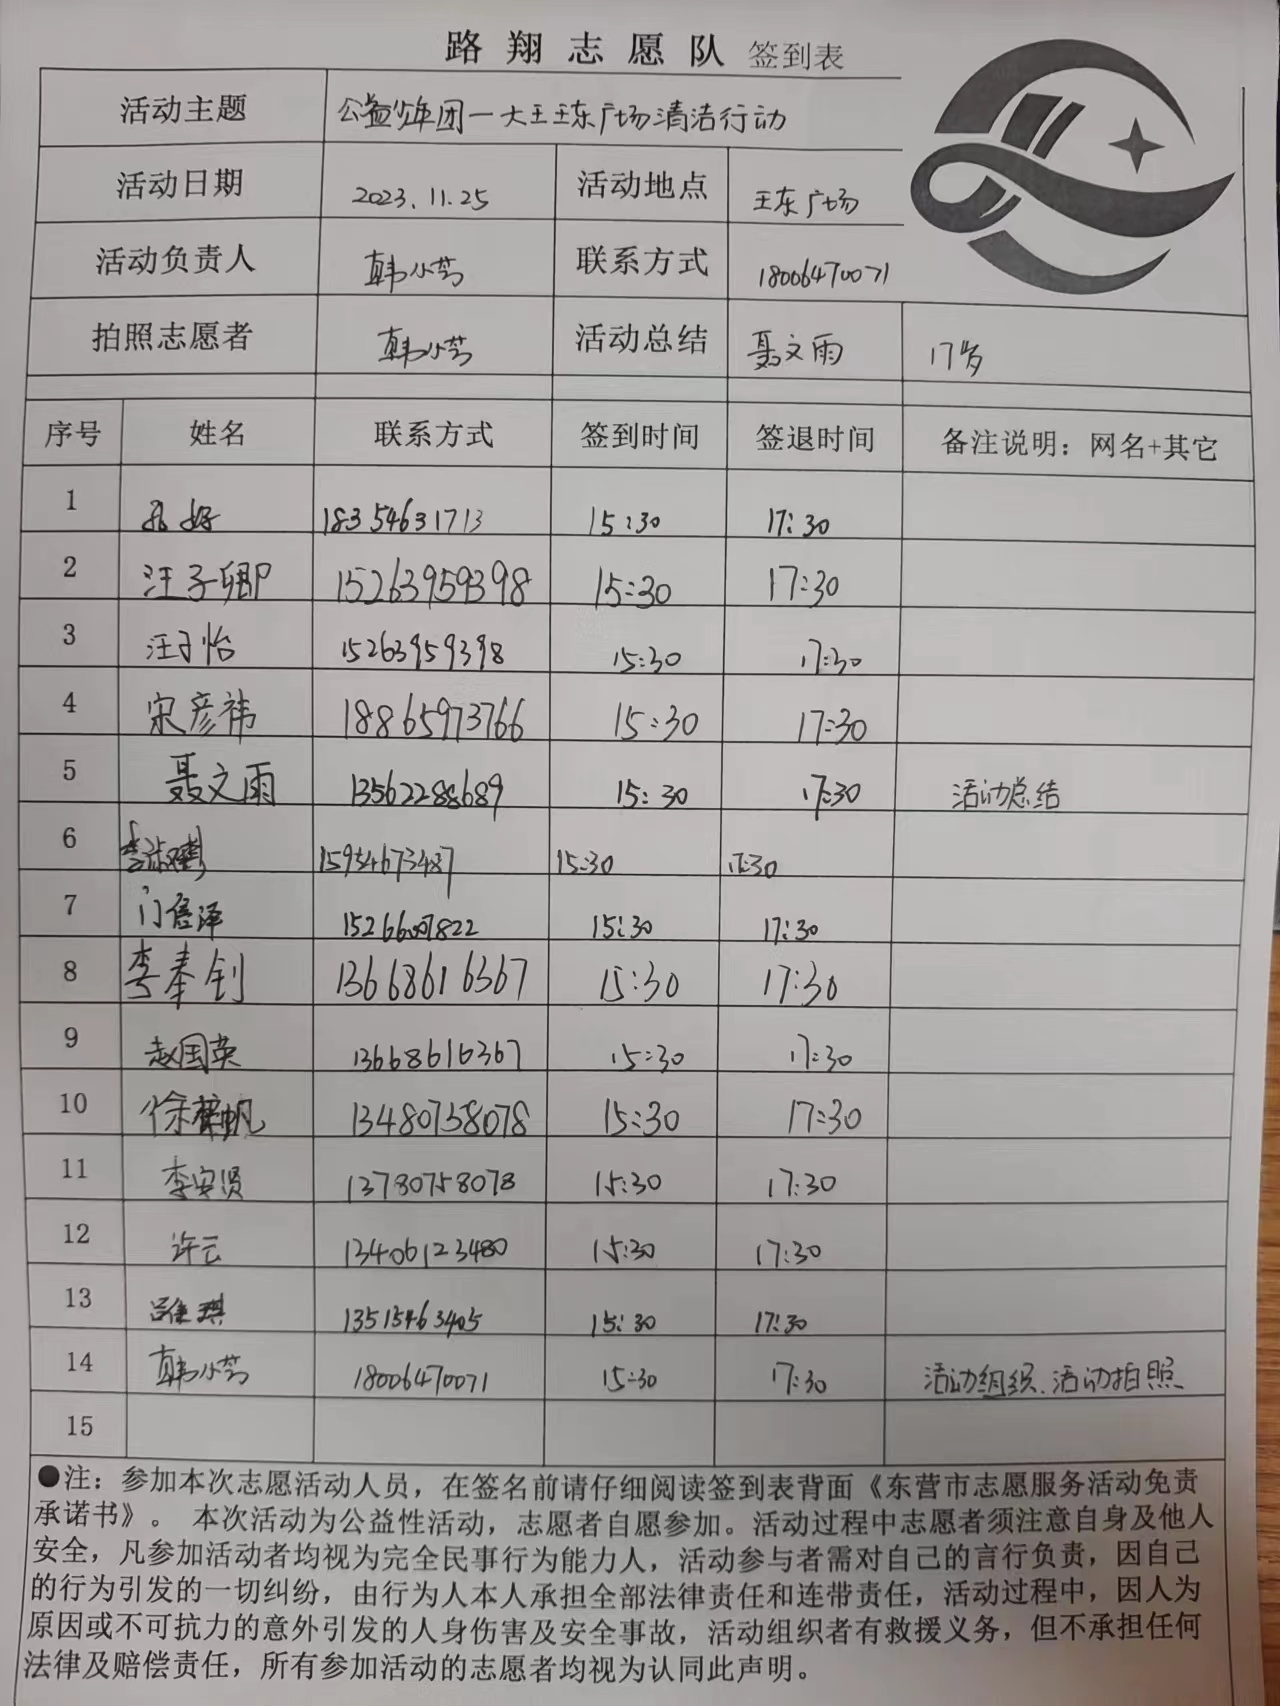 路翔志愿队 签到表
活动主题 公益少年团一大王王东广场清洁行动
活动日期 2023.11.25 活动地点 王东广场
活动负责人 韩小芳 联系方式 18006470071
拍照志愿者 韩小芳 活动总结 聂文雨 17岁
序号 姓名 联系方式 签到时间 签退时间 备注说明：网名+其它
1 18354631713 15:30 17:30
2 汪子卿 15263959398 15:30 17:30
3 汪子怡 15263959398 15:30 17:30
4 宋彦祎 18865973766 15:30 17:30
5 聂文雨 13562288689 15:30 17:30 活动总结
6 15954673487 15:30 17:30
7 门信泽 15266007822 15:30 17:30
8 李奉钊 13668616367 15:30 17:30
9 赵国英 13668616367 15:30 17:30
10 13480758078 15:30 17:30
11 李安贤 13780758078 15:30 17:30
12 许云 13406123480 15:30 17:30
13 13515463405 15:30 17:30
14 韩小芳 18006470071 15:30 17:30 活动组织、活动拍照
15
●注：参加本次志愿活动人员，在签名前请仔细阅读签到表背面《东营市志愿服务活动免责
承诺书》。 本次活动为公益性活动，志愿者自愿参加。活动过程中志愿者须注意自身及他人
安全，凡参加活动者均视为完全民事行为能力人，活动参与者需对自己的言行负责，因自己
的行为引发的一切纠纷，由行为人本人承担全部法律责任和连带责任，活动过程中，因人为
原因或不可抗力的意外引发的人身伤害及安全事故，活动组织者有救援义务，但不承担任何
法律及赔偿责任，所有参加活动的志愿者均视为认同此声明。